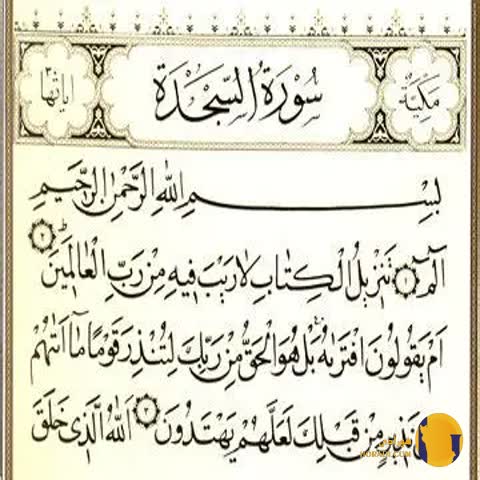 مكية سورة السجدة اياتها ٣٠
بسم الله الرحمن الرحيم
الم ١ تنزيل الكتاب لا ريب فيه من رب العالمين ٢
ام يقولون افتريه بل هو الحق من ربك لتنذر قوما ما اتيهم
من نذير من قبلك لعلهم يهتدون ٣ الله الذى خلق